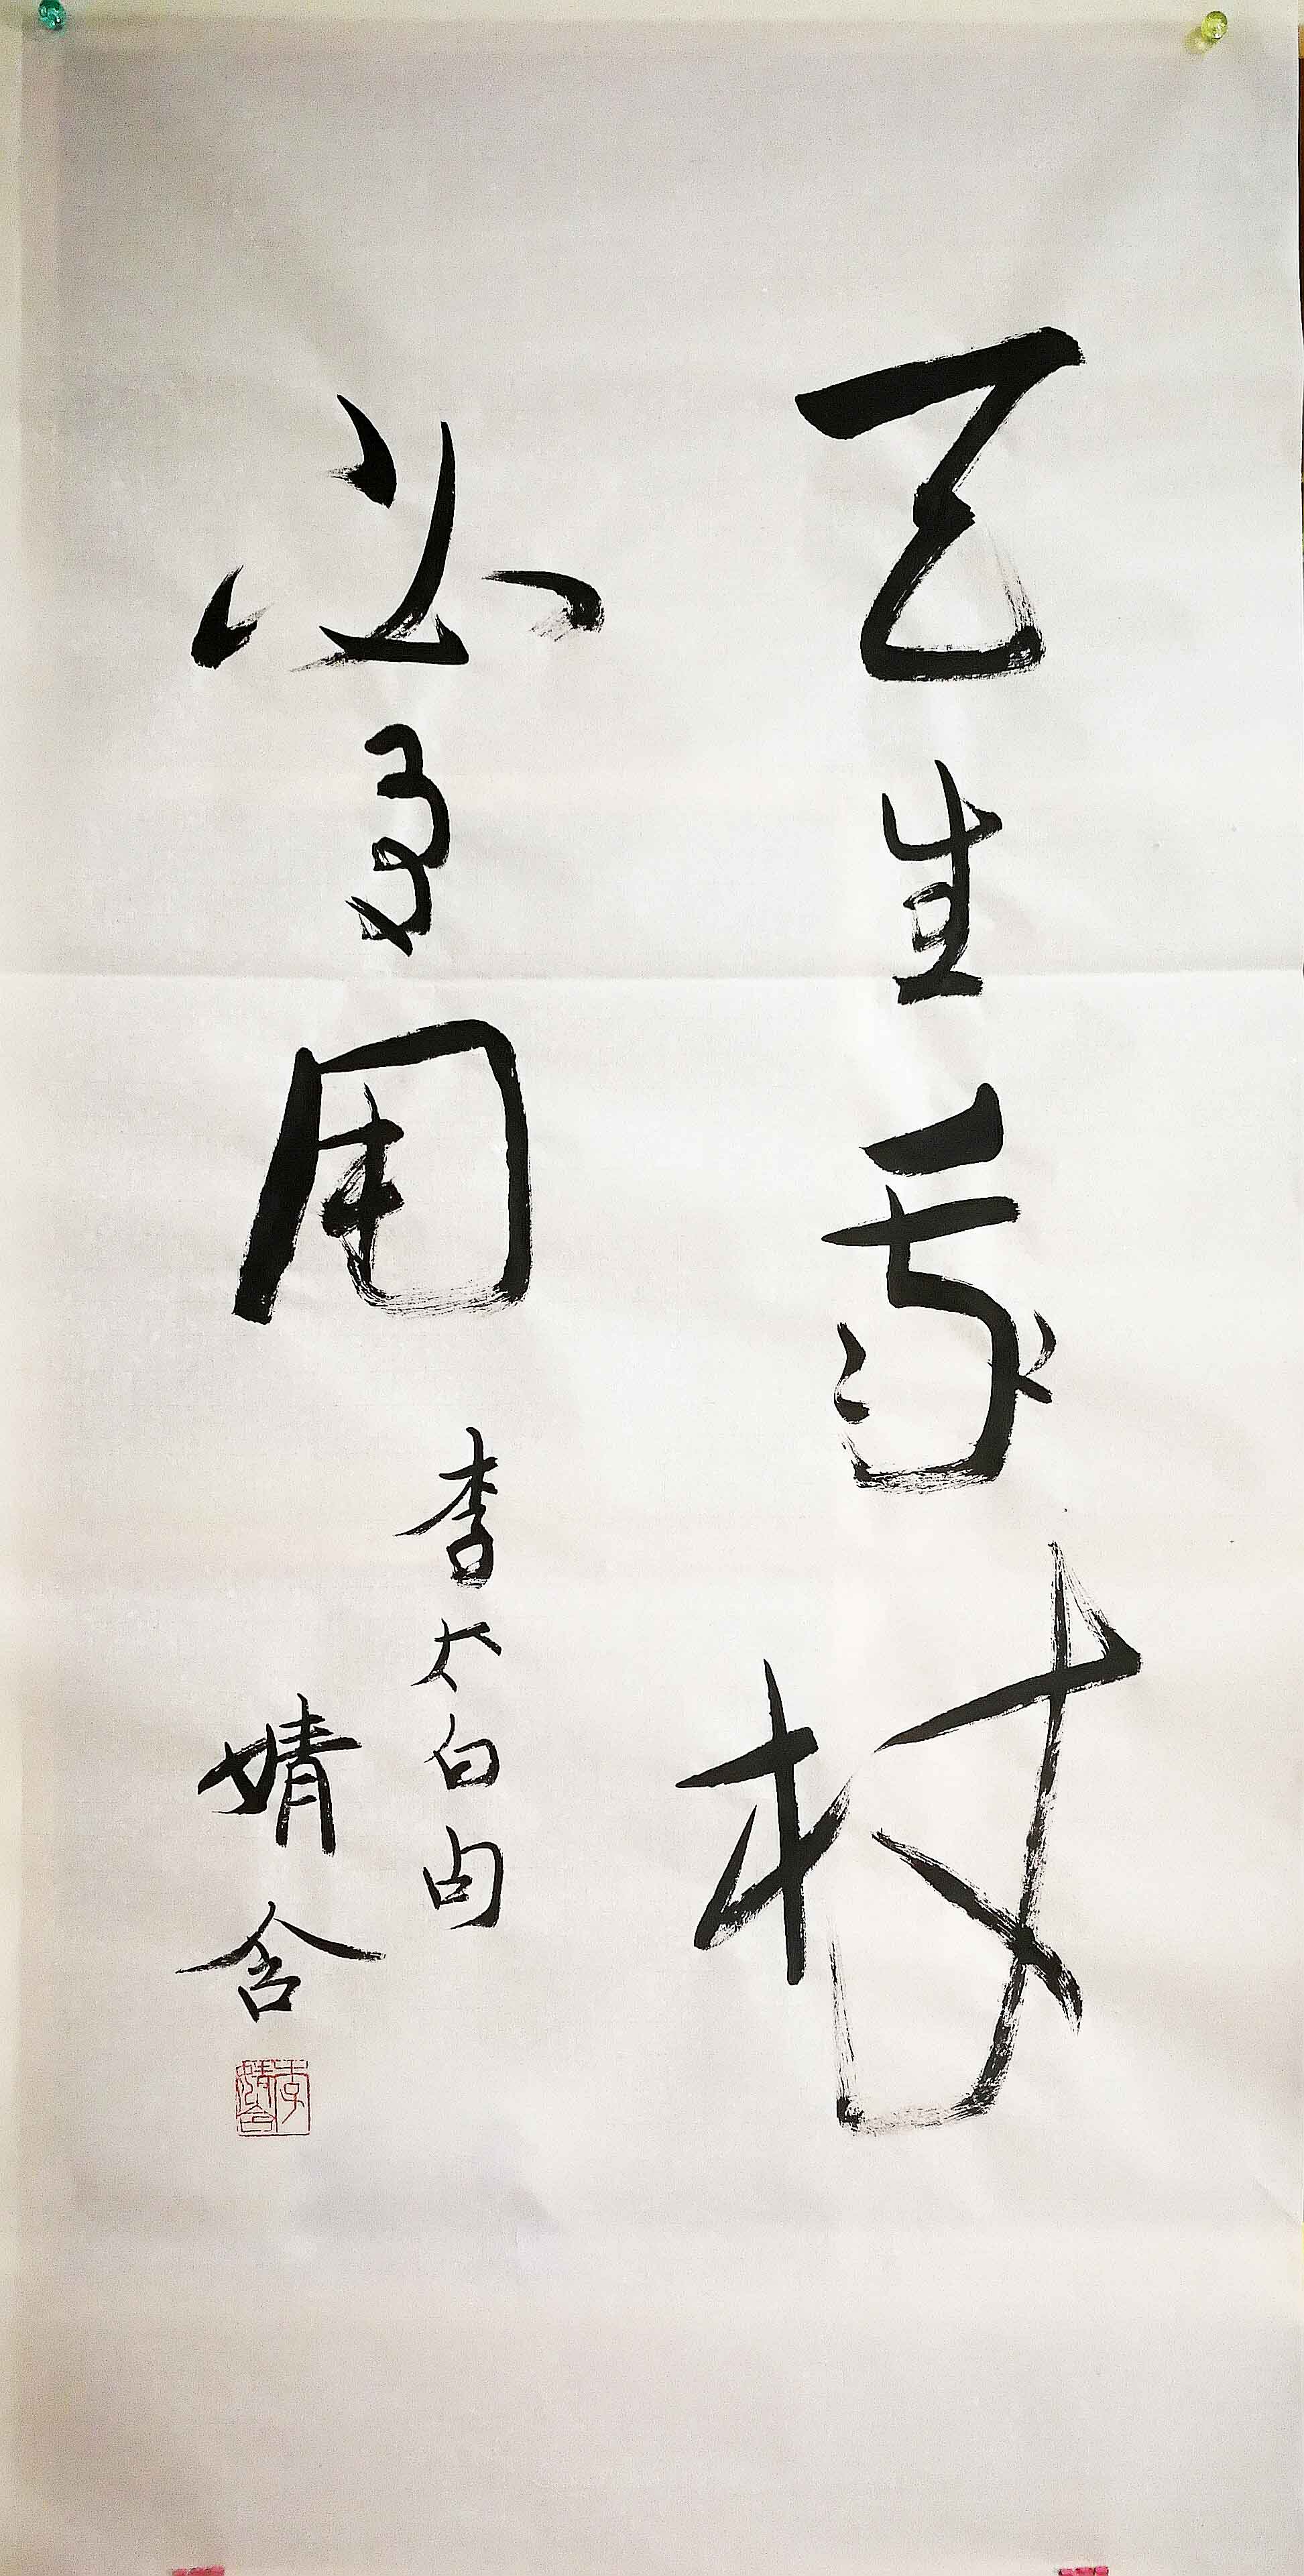 天生我材
必有用
李太白句
婧含
李婧含